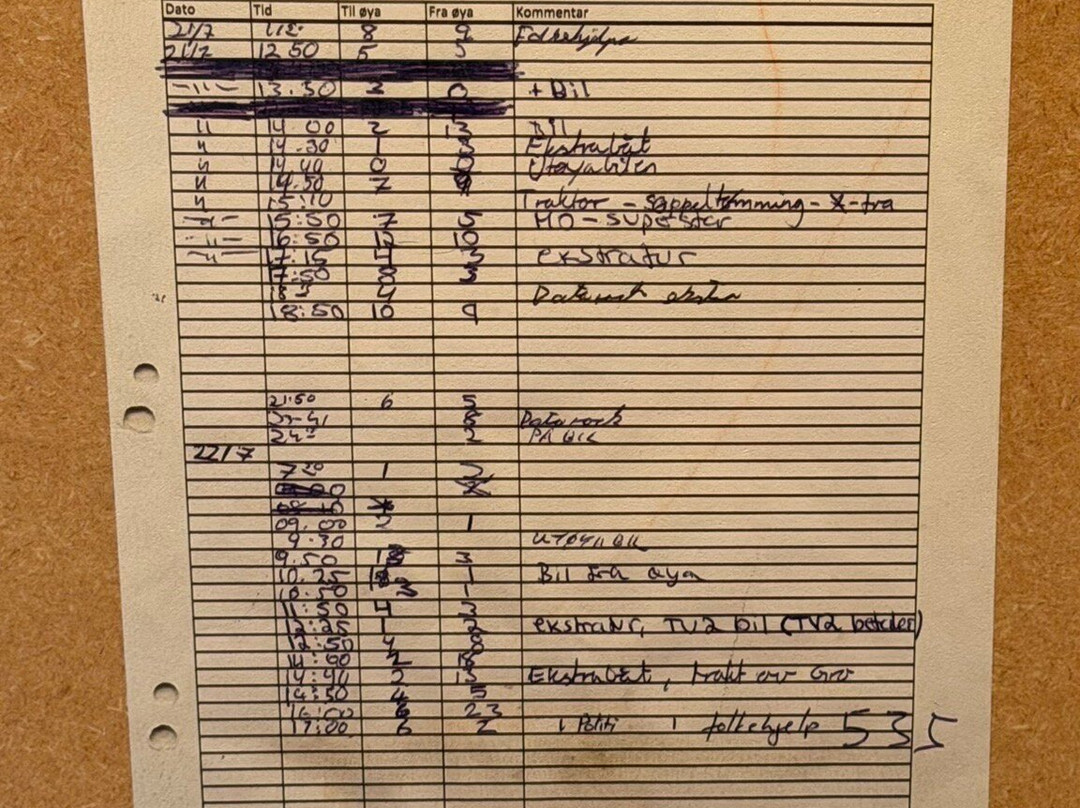 Dato Tid Til øya Fra øya Kommentar
21/7 8 9
21/7 12 50 5 5
-11- 13.30 3 0 + Bil
11 14.00 2 13 Bil
11 14.30 1 3 Ekstrabåt
11 14.40 0 0 Utøyabilen
11 14.50 7
11 15:10 Traktor - søppeltømming - X-tra
-11- 15:50 7 5 MO - Superstar
-11- 16:50 12 10
-11- 17:15 4 3 ekstratur
17:50 8 3
4 Datarock ekstra
18:50 10 9
21:50 6 5
8 Datarock
2 PÅ BIL
22/7
7 20 1 2
09.00 2 1
9.30 UTØYA BIL
9.50 3
10.25 1 Bil fra øya
10.50 3 1
11:50 4 3
12:25 1 2 ekstratur, TV2 bil (TV2 betaler)
12:50 4 8
14:00 2 18
14:40 2 13 Ekstrabåt, frakt av Gro
14:50 4 5
16:00 6 23
17:00 6 2 1 Politi 1 folkehjelp 535